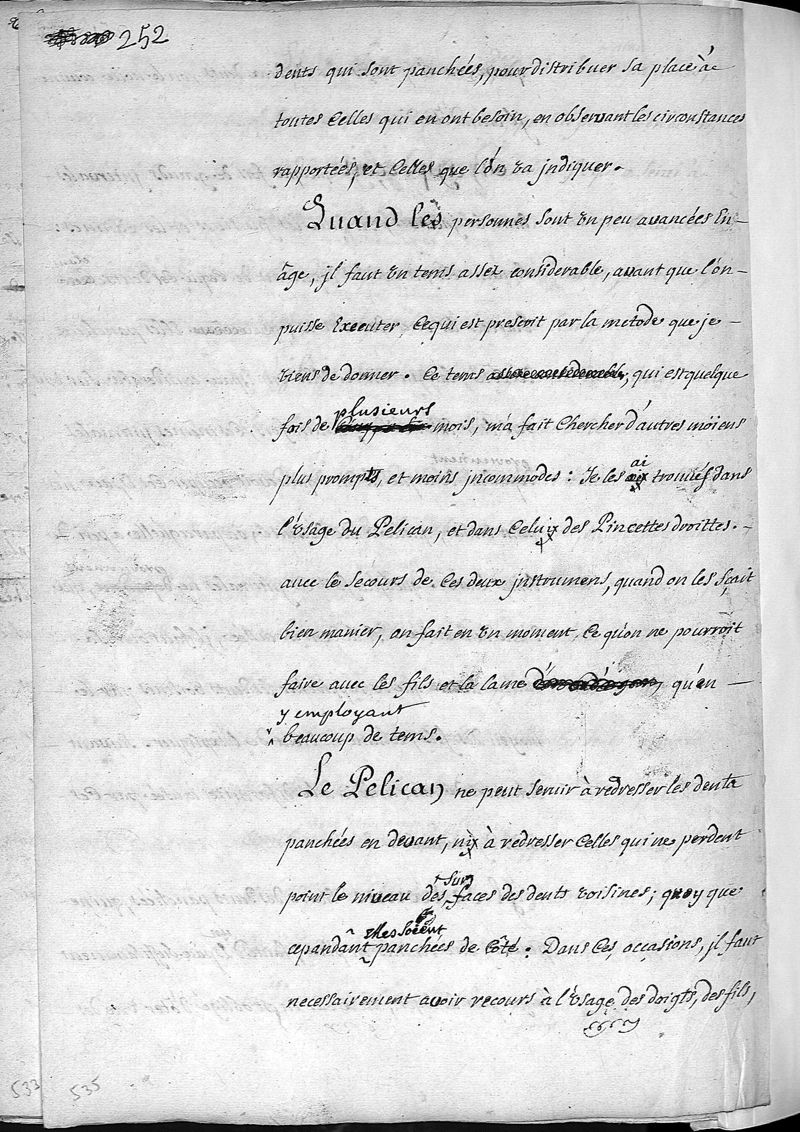 252
dents qui sont panchées, pour distribuer sa place àe
toutes Celles qui en ont besoin, en observant les circonstances
rapportées, et Celles que l'on va jndiquer.
Quand les personnes sont un peu avancées En
âge, jl faut un tems assez considerable, avant que l'on
puisse Executer, Ce qui est prescrit par la metode que je
viens de donner. Ce tems, qui est quelque
plusieurs
fois de mois, m'a fait Chercher d'autres möiens
ai
plus prompts, et moins jncommodes: Je les trouvés dans
l'Usage du Pelican, et dans Celui des Pincettes droittes.
avec le secours de Ces deux jnstrumens, quand on les sçait
bien manier, on fait en un moment, Ce qu'on ne pourroit
faire avec les fils et la lame qu'en
y employant
beaucoup de tems.
Le Pelican ne peut servir à redresser les dents
panchées en devant, ni à redresser Celles qui ne perdent
sur
point le niveau des faces des dents voisines; quoy que
elles soient
cepandant panchées de Côté. Dans Ces occasions, jl faut
necessairement avoir recours à l'Usage des doigts, des fils,
533
535